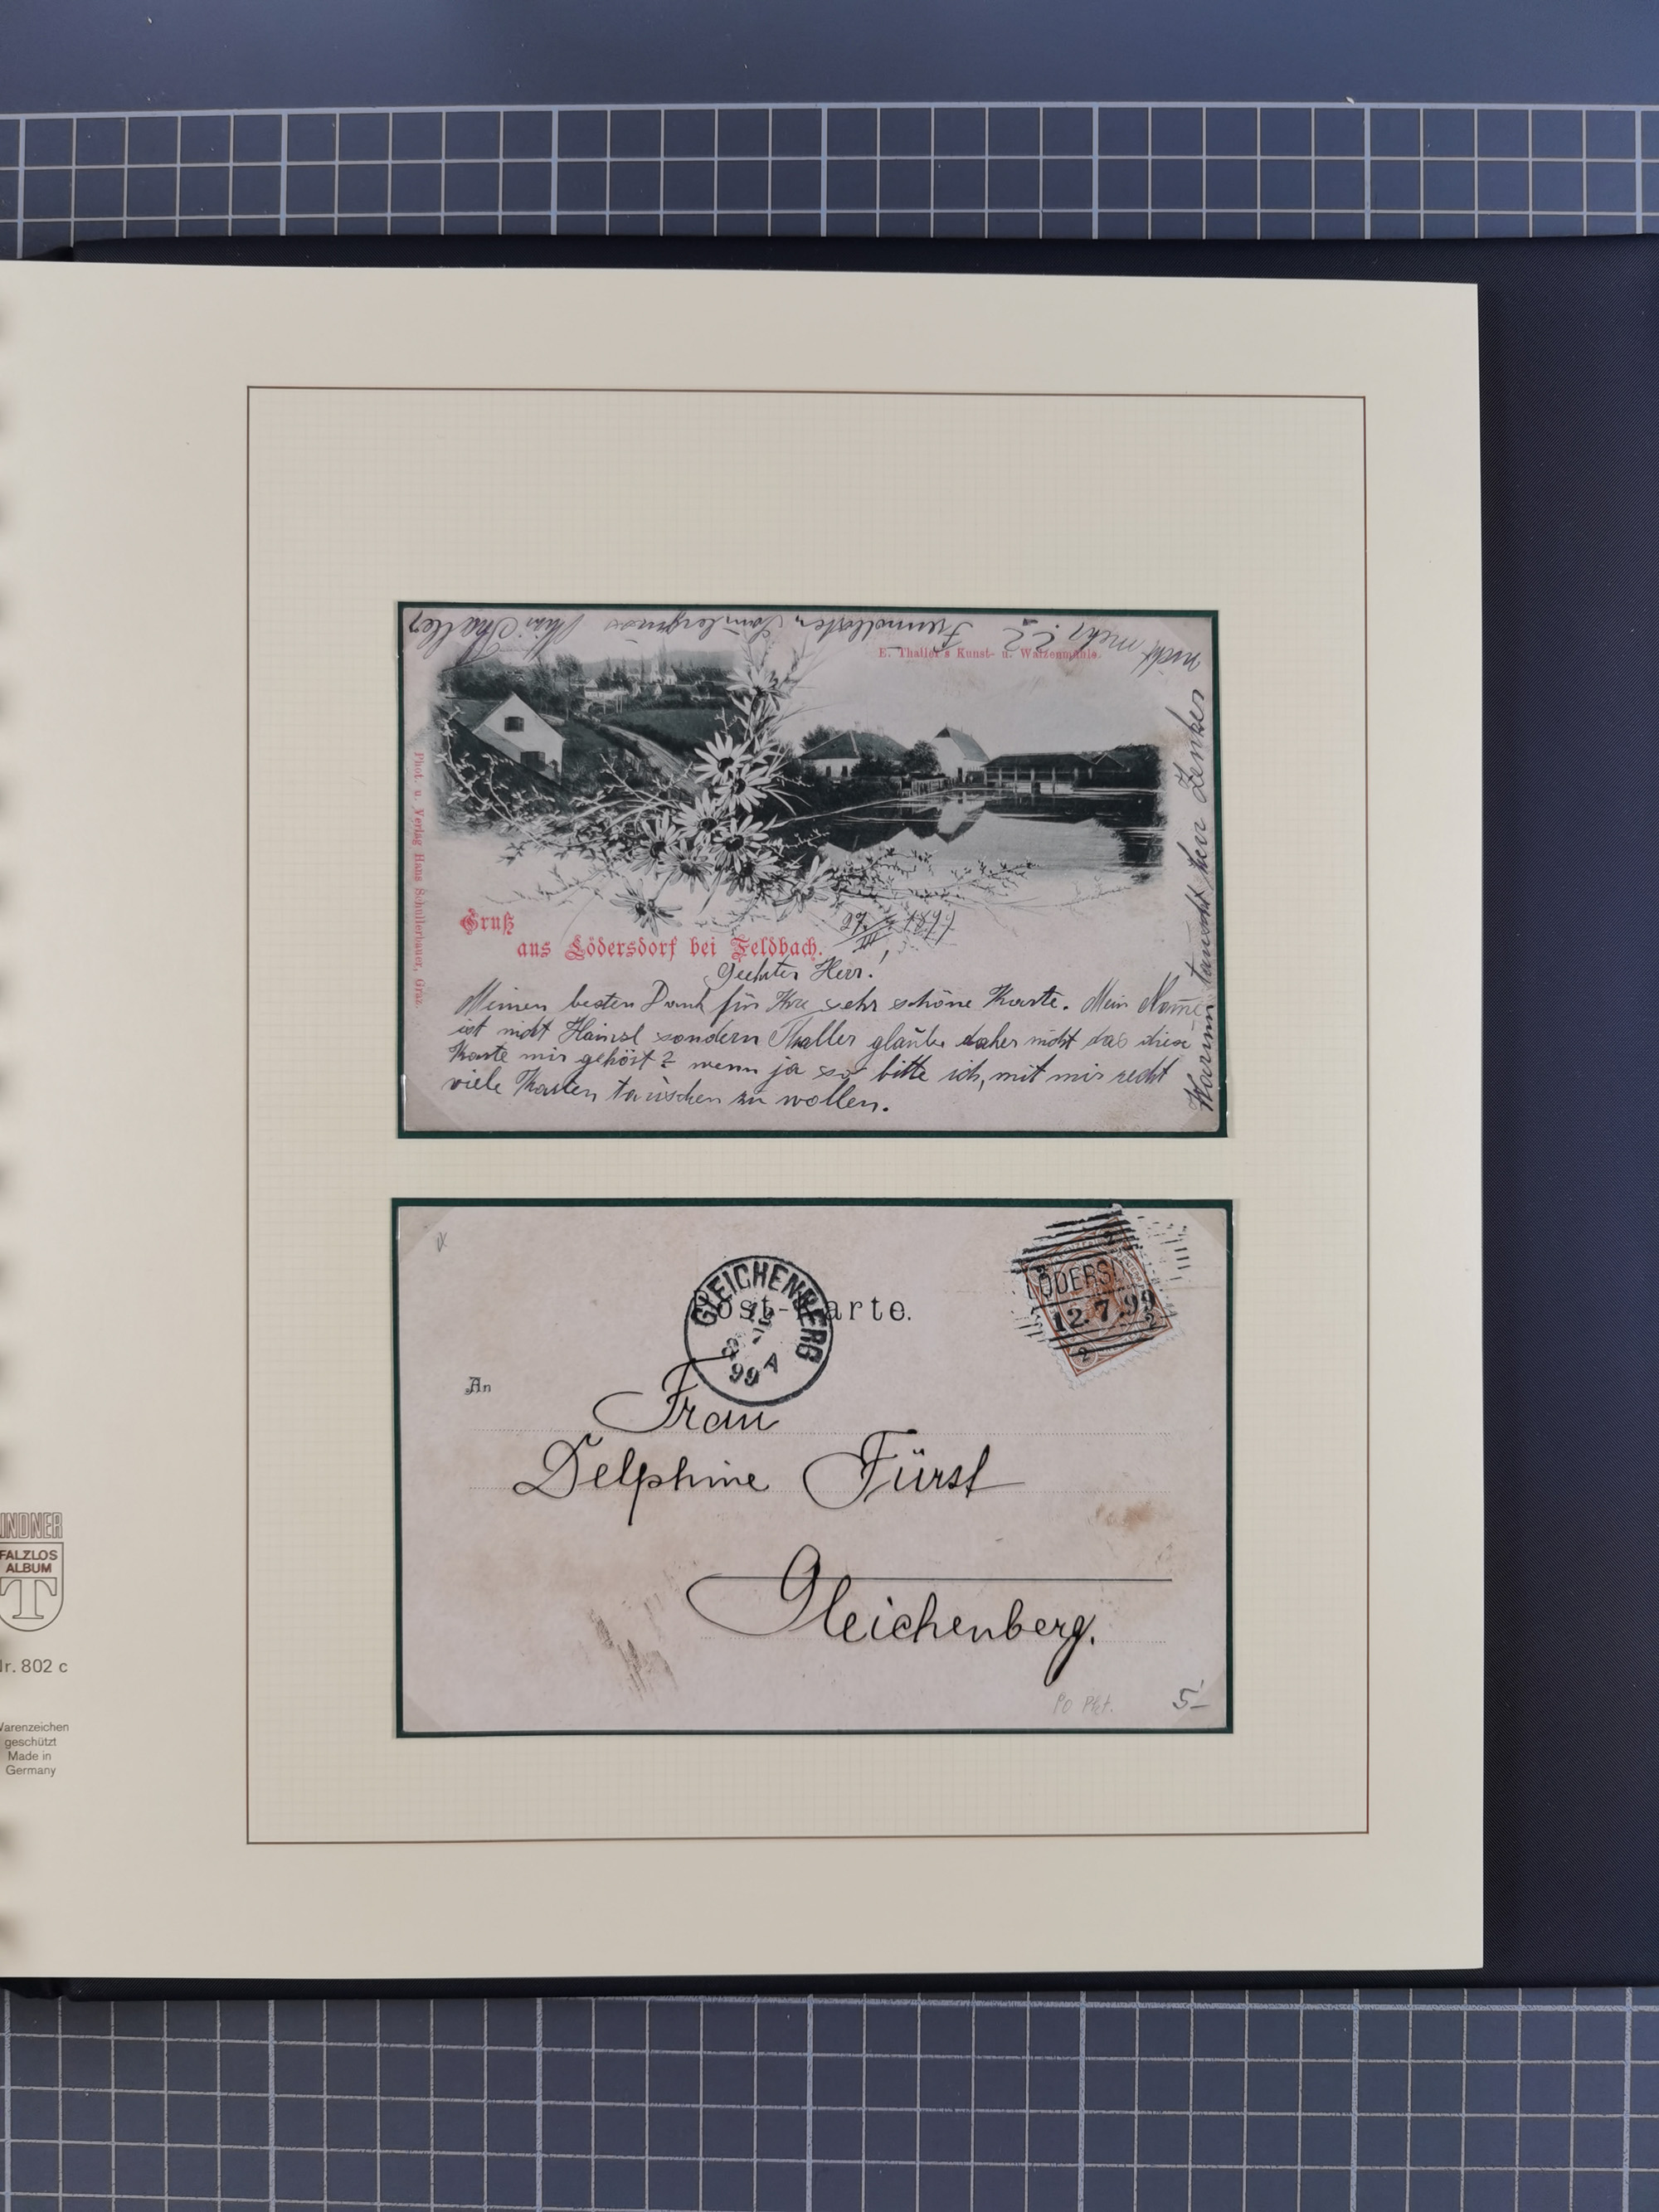 nicht mehr ?? Freundlichsten Thaller
E. Thaller's Kunst- u. Walzenmühle.
Phot. u. Verlag Hans Schullerbauer, Graz.
Gruß
aus Lödersdorf bei Feldbach.
27/III 1899
Geehrter Herr!
Meinen besten Dank für Ihre sehr schöne Karte. Mein Name
ist nicht Hainsl sondern Thaller glaube daher nicht das diese
Karte mir gehört? wenn ja so bitte ich, mit mir recht
viele Karten tauschen zu wollen.
Warum tauscht Herr Zenker
GLEICHENBERG
12
7
99 A
Post-Karte.
ÖDERS
12.7.99
2
2
2
An
Frau
Delphine Fürst
Gleichenberg.
5-
LINDNER
FALZLOS
ALBUM
T
Nr. 802 c
Warenzeichen
geschützt
Made in
Germany